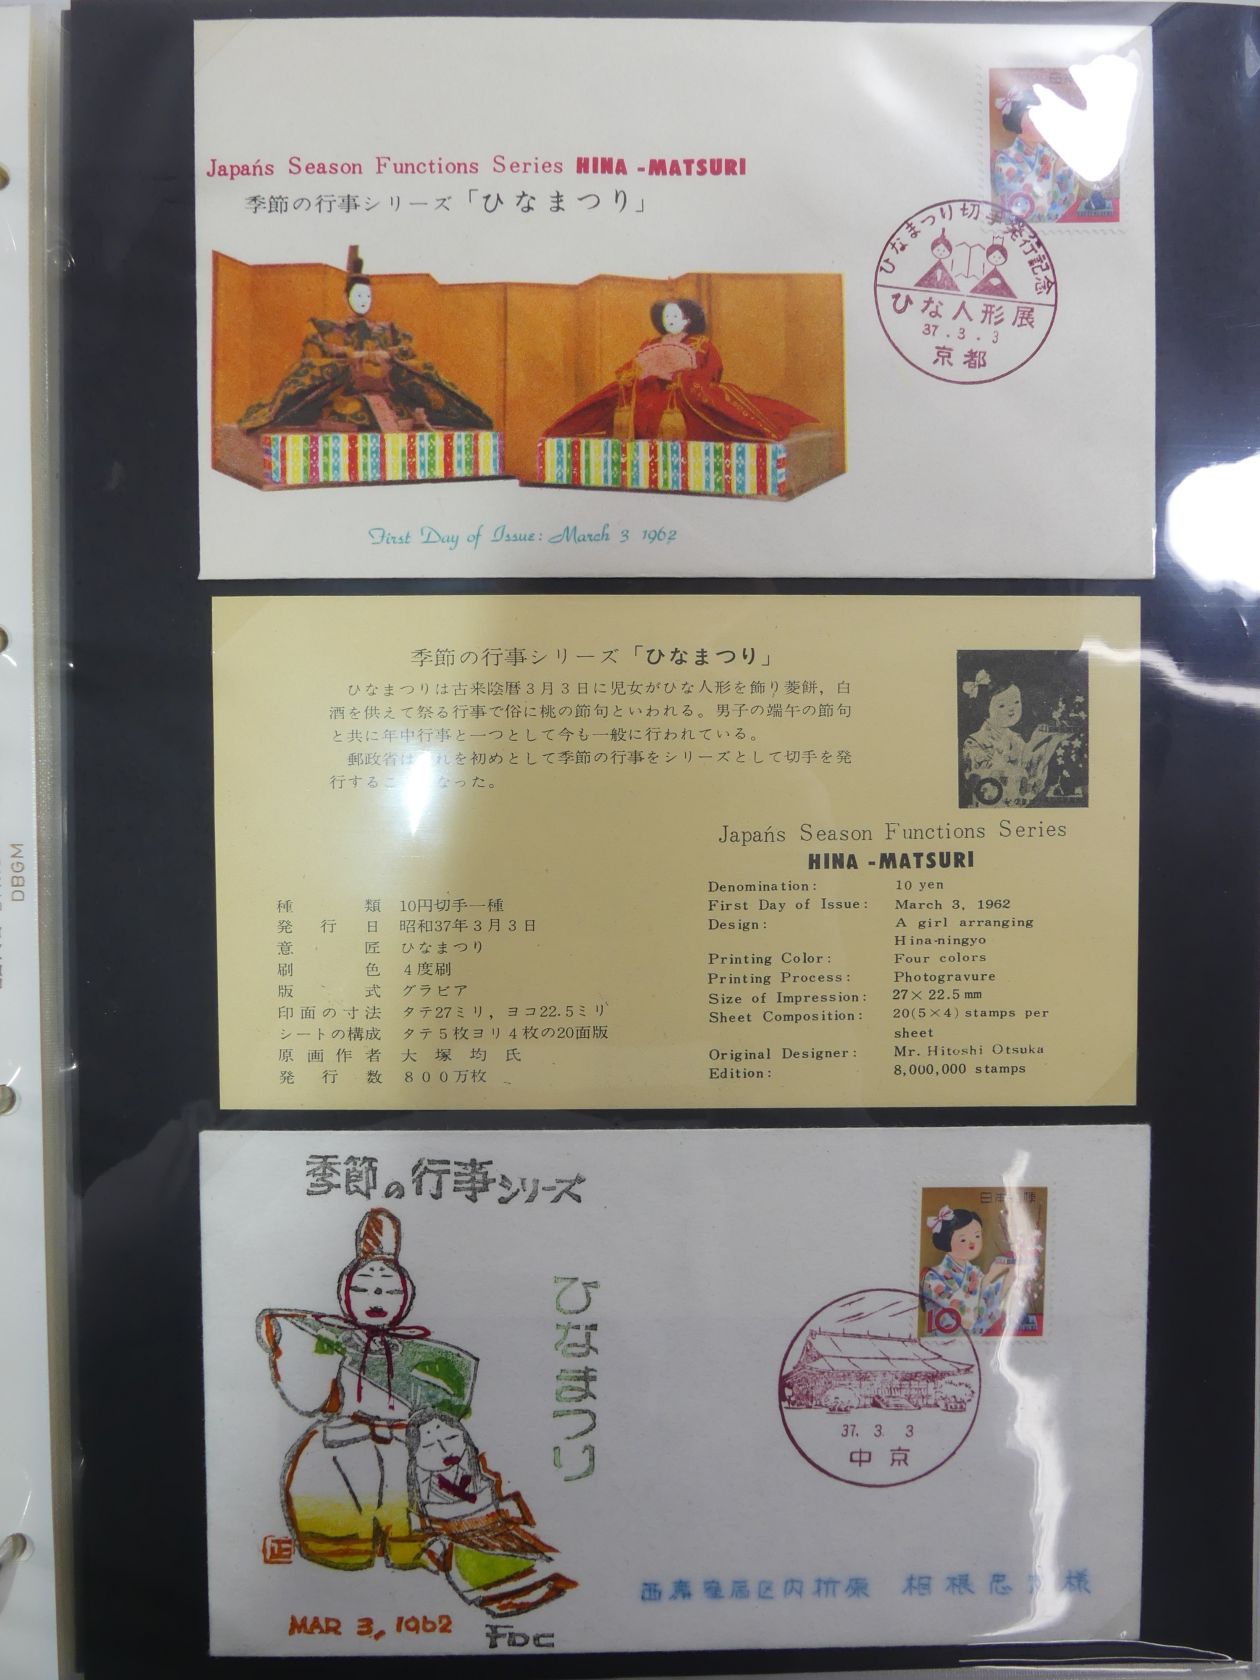 Japań́s Season Functions Series HINA -MATSURI
季節の行事シリーズ「ひなまつり」
ひなまつり切手発行記念
ひな人形展
37.3.3
京都
First Day of Issue: March 3 1962
季節の行事シリーズ「ひなまつり」
ひなまつりは古来陰暦3月3日に児女がひな人形を飾り菱餅，白
酒を供えて祭る行事で俗に桃の節句といわれる。男子の端午の節句
と共に年中行事と一つとして今も一般に行われている。
郵政省は れを初めとして季節の行事をシリーズとして切手を発
行するこ なった。
10
Japańs Season Functions Series
HINA -MATSURI
種類 10円切手一種
発行日 昭和37年3月3日
意匠 ひなまつり
刷色 4度刷
版式 グラビア
印面の寸法 タテ27ミリ，ヨコ22.5ミリ
シートの構成 タテ5枚ヨリ4枚の20面版
原画作者 大塚均氏
発行数 800万枚
Denomination: 10 yen
First Day of Issue: March 3, 1962
Design: A girl arranging
Hina-ningyo
Printing Color: Four colors
Printing Process: Photogravure
Size of Impression: 27×22.5mm
Sheet Composition: 20(5×4) stamps per
sheet
Original Designer: Mr. Hitoshi Otsuka
Edition: 8,000,000 stamps
季節の行事シリーズ
ひなまつり
日本郵便
10
37.3.3
中京
正
MAR 3, 1962
FDC
局区内 原 相根忠 様
DBGM